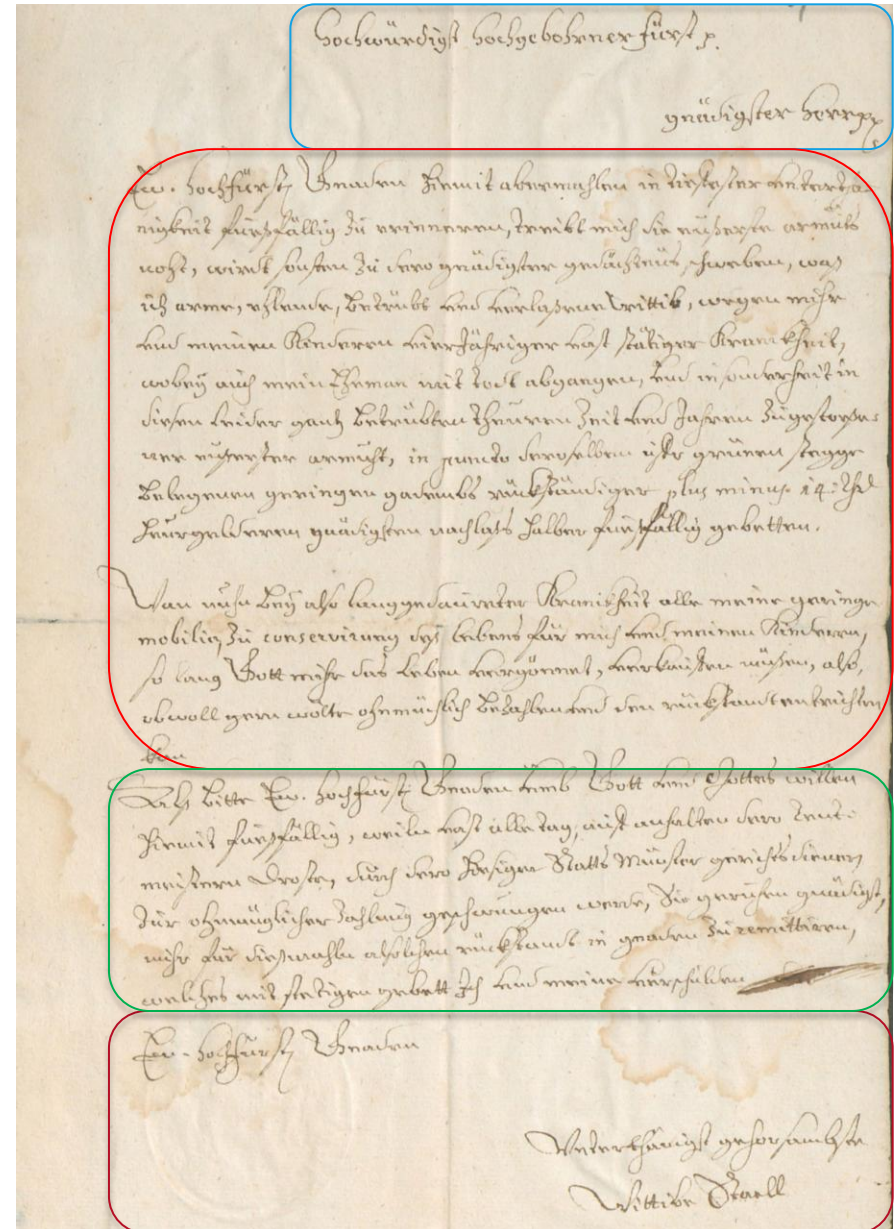 Hochwürdigst Hochgebohrner Fürst p.
gnädigster Herr pp
Ew. Hochfürstl. Gnaden hiemit abermahlen in tiefester untertha-
nigkeit fuesfällig zu erinneren, treibt mich die eußerste armuts
noht, wirdt sonsten zu dero gnädigster gedächtnus schweben, waß
ich arme, ehlende, betrübt und verlaßene Wittib, wegen mihr
und meinen Kinderen vierJähriger fast stätiger Kranckheit,
wobey auch mein Eheman mit todt abgangen, und insonderheit in
diesen leider gantz betrübten theuren Zeit und Jahren zugestoße-
ner eußerster armuht, in puncto deroselben ufr grünen stegge
belegenen geringen gadembs rückständiger plus minus 14 thl
heurgelderen gnädigsten nachlaß halber fuesfällig gebetten.
Wan nuhn bey also langgedaurter Kranckheit alle meine geringe
mobilia, zu conservirung deß lebens für mich und meinen Kinderen,
so lang Gott mihr das leben vergönnet, verkauffen müßen, also,
obwoll gern wolte ohnmüchlich bezahlen und den rückstandt entrichten
kan
Alß bitte Ew. Hochfürstl. Gnaden umb Gott und Gottes willen
hiemit fuesfällig, weiln fast alle tag, auff anhalten dero rent-
meistern Droste, durch dero hiesiger Statts Münster gerichts diener,
zur ohnmüglicher zahlung gezwungen werde, Sie geruhen gnädigst,
mihr für dießmahln alsolchen rückstandt in gnaden zu remittiren,
welches mit stetigen gebett Ich und meine verschulden
Ew. Hochfürstl. Gnaden
Underthänigst gehorsambste
Wittibe Staell